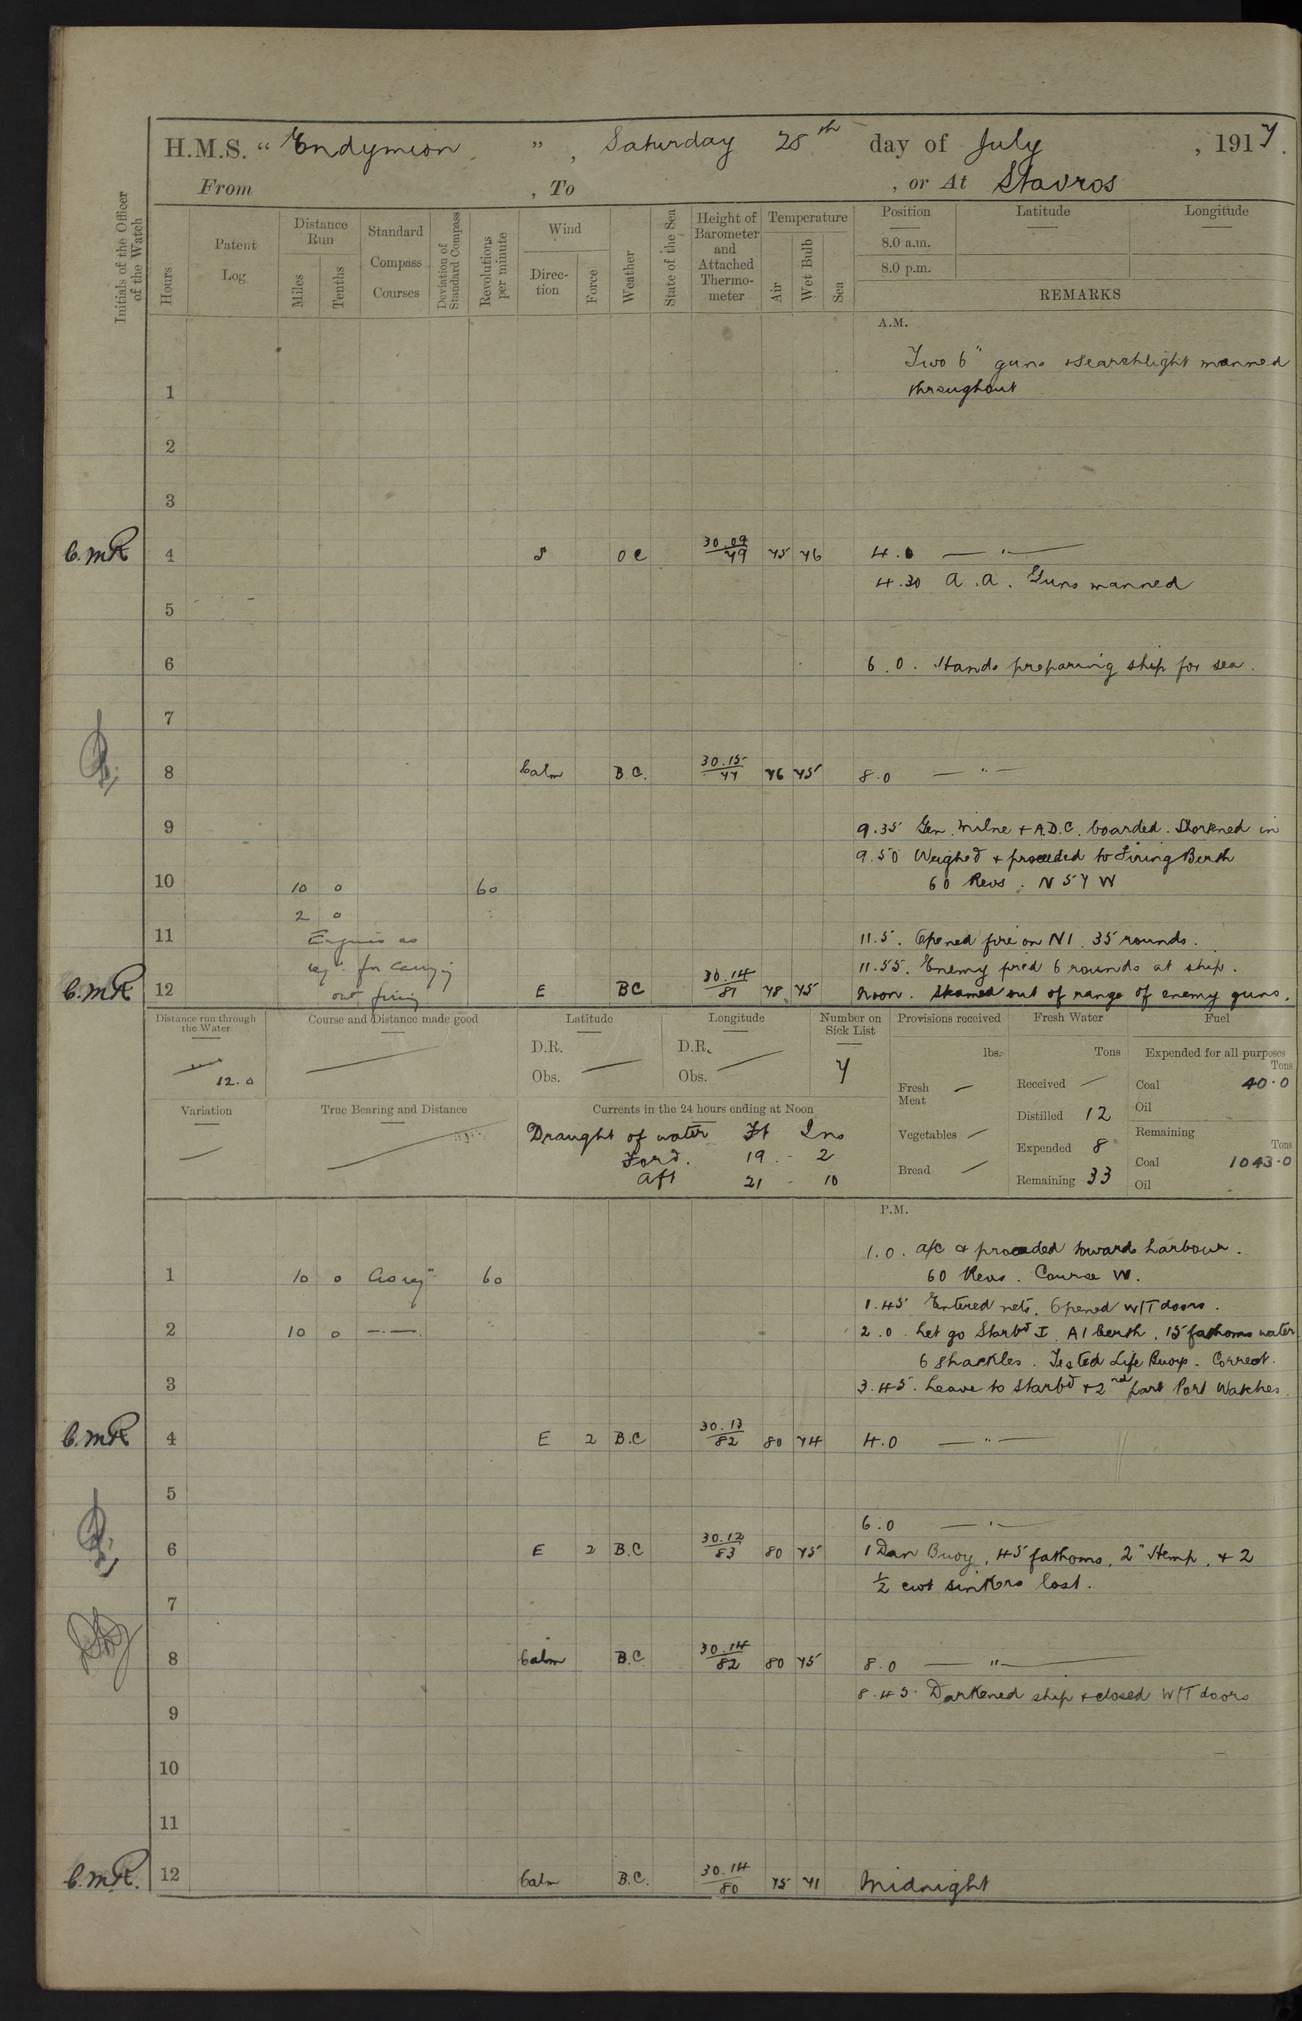 H.M.S. "Endymion", Saturday 28th day of July, 1917.
From , To , or At Stavros
Initials of the Officer of the Watch
Hours
Patent Log
Distance Run
Miles
Tenths
Standard Compass Courses
Deviation of Standard Compass
Revolutions per minute
Wind
Direction
Force
Weather
State of the Sea
Height of Barometer and Attached Thermometer
Temperature
Air
Wet Bulb
Sea
Position Latitude Longitude
8.0 a.m.
8.0 p.m.
REMARKS
A.M.
Two 6" guns & searchlight manned
1 throughout
2
3
C.M.R. 4 S O C 30.09/79 75 76 4.0 — " —
4.30 A.A. Guns manned
5
6 6.0. Hands preparing ship for sea.
7
8 Calm B.C. 30.15/77 76 75 8.0 — " —
9 9.35 Gen. Milne & A.D.C. boarded. Shortened in
9.50 Weighed & proceeded to Firing Berth
10 10 0 60 60 Revs. N 57 W
2 0
11 Engines as 11.5. Opened fire on N1. 35 rounds.
req. for carrying 11.55. Enemy fired 6 rounds at ship.
C.M.R. 12 out firing E BC 30.14/81 78 75 Noon. Steamed out of range of enemy guns.
Distance run through the Water Course and Distance made good Latitude Longitude Number on Sick List Provisions received Fresh Water Fuel
12.0
D.R. D.R.
Obs. Obs.
7
lbs. Tons Expended for all purposes Tons
Fresh Meat — Received — Coal 40.0
Distilled 12 Oil
Vegetables — Expended 8 Remaining Tons
Bread — Remaining 33 Coal 1043.0
Oil
Variation True Bearing and Distance Currents in the 24 hours ending at Noon
Draught of water Ft Ins
Ford. 19 - 2
Aft 21 - 10
P.M.
1.0. a/c & proceeded towards harbour.
1 10 0 As req. 60 60 Revs. Course W.
1.45 Entered nets. Opened W/T doors.
2 10 0 —.— 2.0. Let go Starbd I. A1 berth. 15 fathoms water
6 shackles. Tested Life Buoys. Correct.
3 3.45. Leave to Starbd & 2nd part Port Watches.
C.M.R. 4 E 2 B.C 30.13/82 80 74 4.0 — " —
5
6.0 — " —
6 E 2 B.C 30.12/83 80 75 1 Dan Buoy, 45 fathoms, 2" Hemp, & 2
½ cwt sinkers lost.
7
8 Calm B.C. 30.14/82 80 75 8.0 — " —
8.45. Darkened ship & closed W/T doors
9
10
11
C.M.R. 12 Calm B.C. 30.14/80 75 71 Midnight